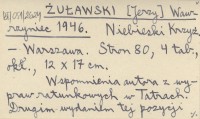 ŻUŁAWSKI [Jerzy] Waw-
rzyniec 1946. Niebieski Krzyż
– Warszawa. Stron 80, 4 tabl.,
okł., 12 x 17 cm.
Wspomnienia autora z wy-
praw ratunkowych w Tatrach.
Drugim wydaniem tej pozycji